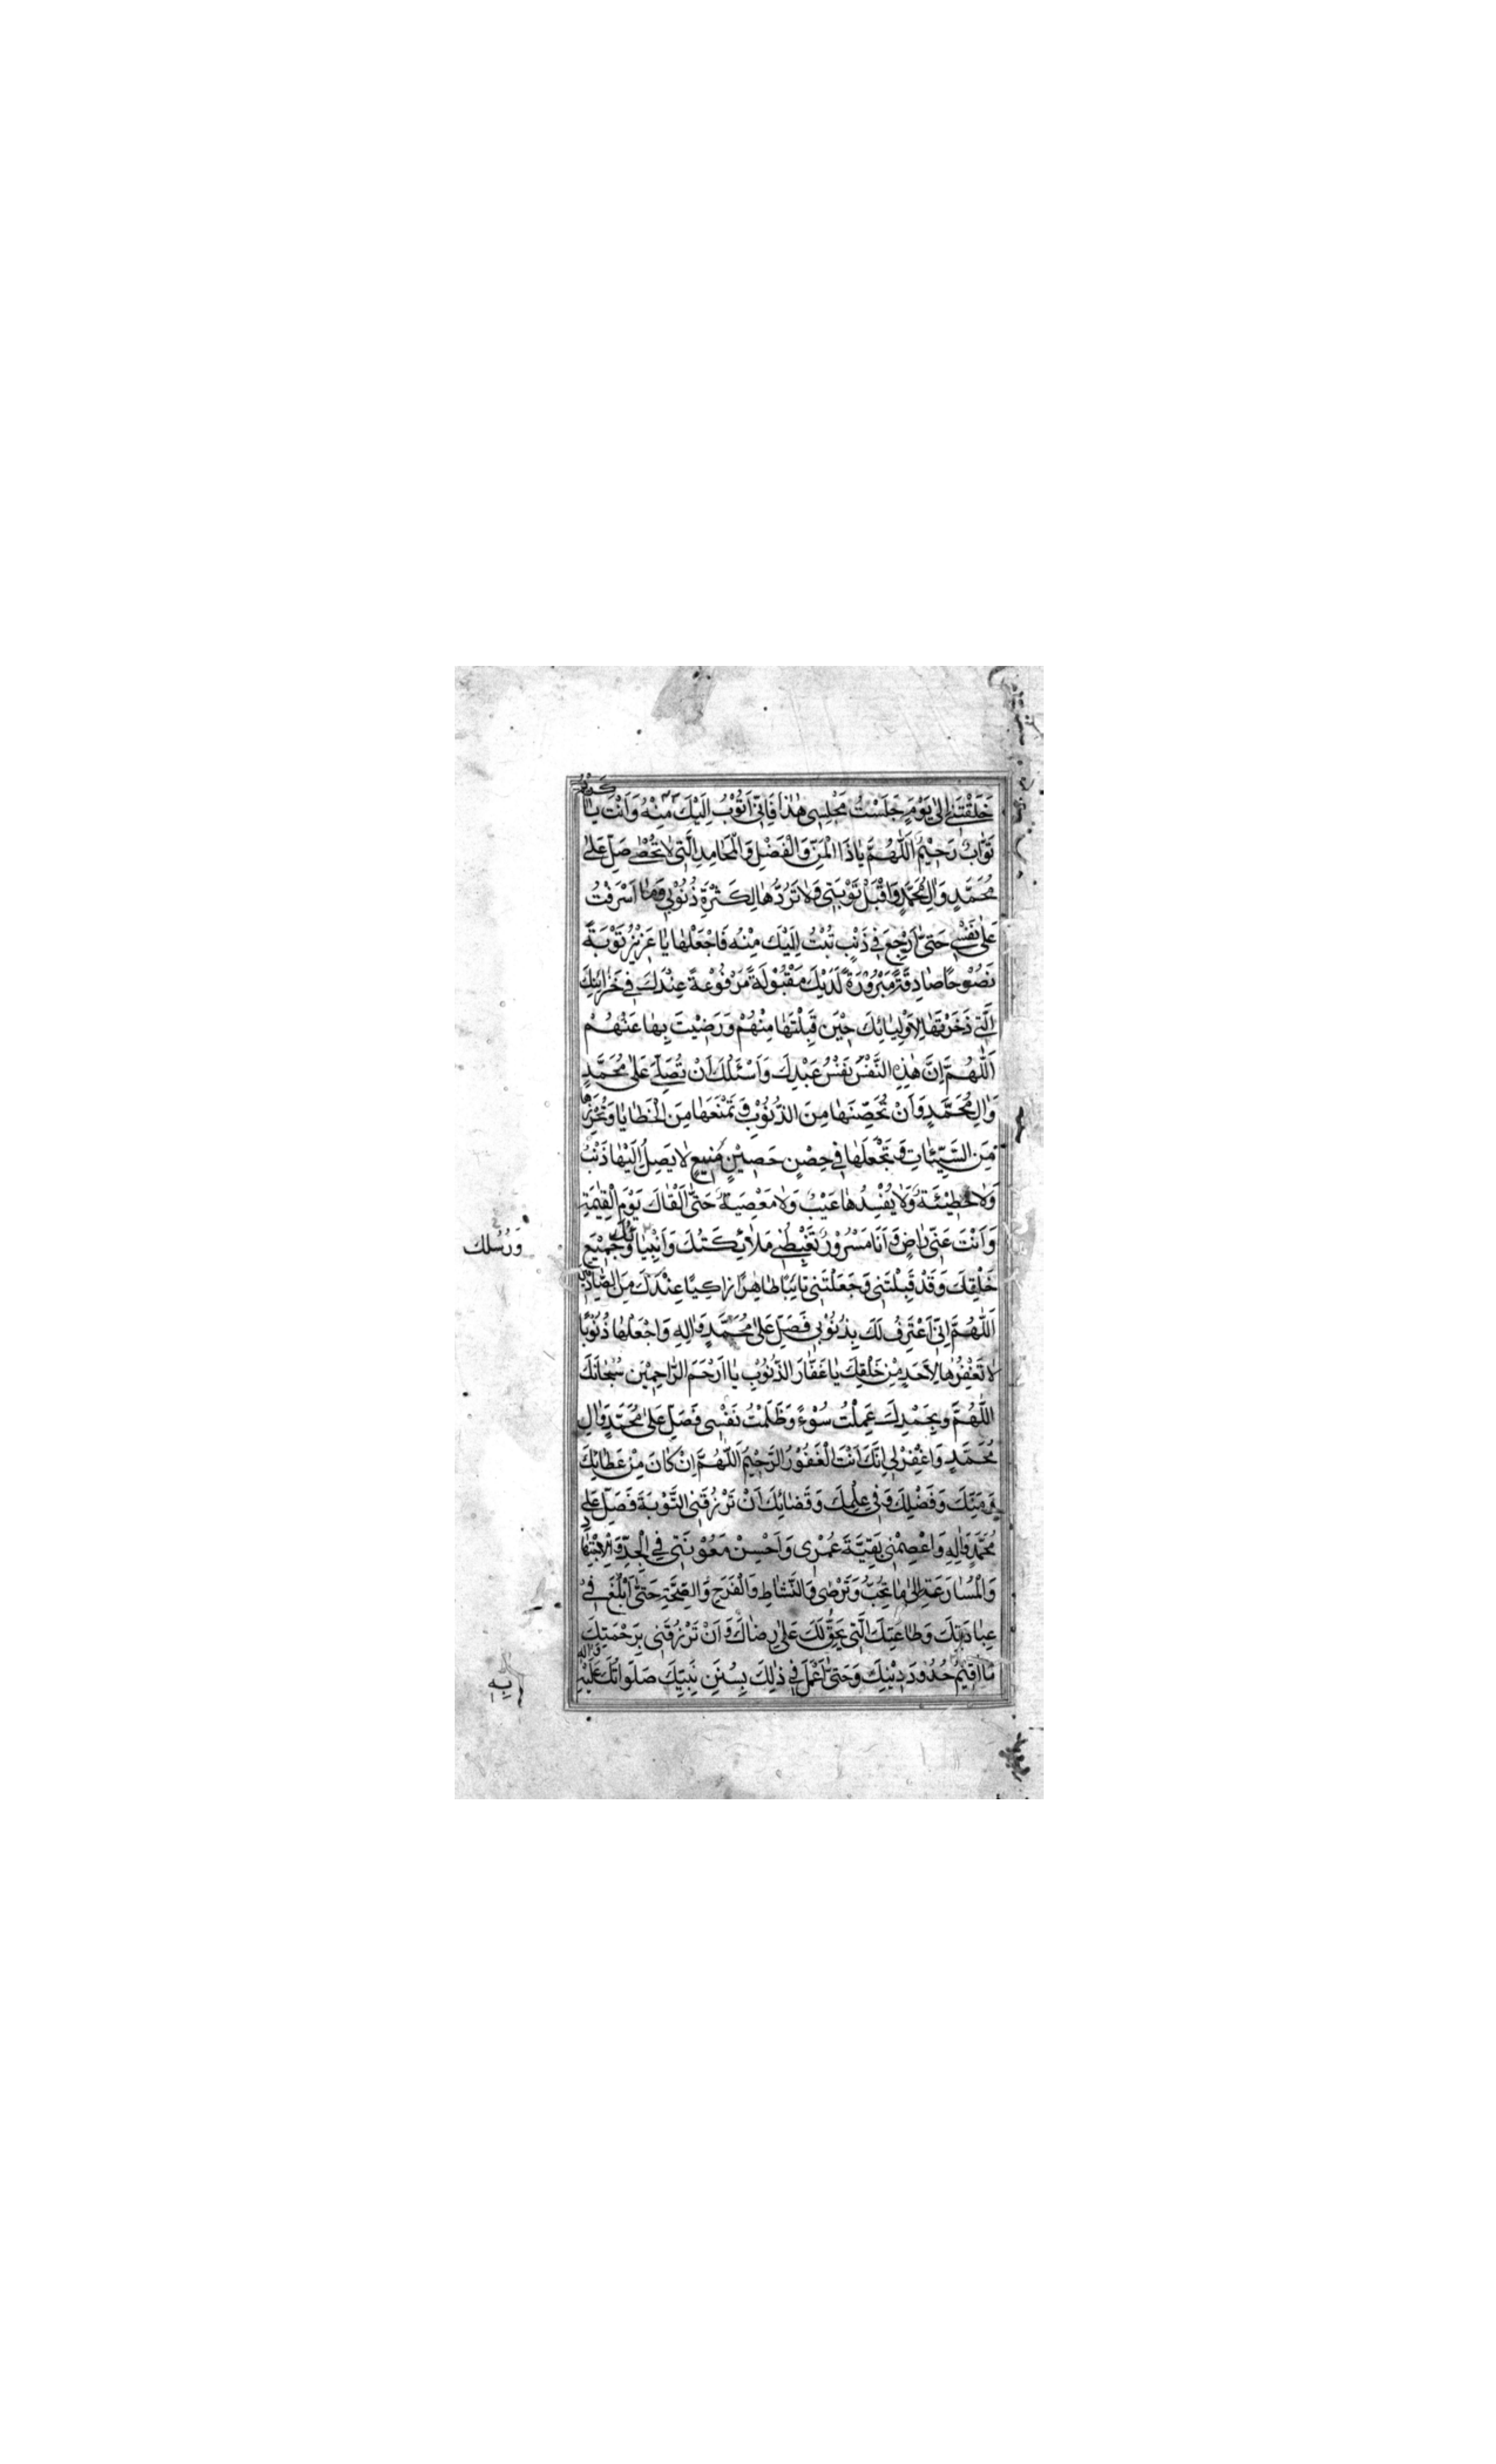 خَلَقْتَنِي اِلىٰ يَوْمٍ جَلَسْتُ مَجْلِسِي هٰذَا فَاِنّي اَتُوْبُ اِلَيْكَ مِنْهُ وَاَنْتَ يٰا كَرِيْمُ
تَوّٰابٌ رَحِيْمٌ اَللّٰهُمَّ يٰا ذَا الْمَنِّ وَالْفَضْلِ وَالْمَحٰامِدِ الَّتِي لٰا تُحْصٰى صَلِّ عَلىٰ
مُحَمَّدٍ وَاٰلِ مُحَمَّدٍ وَاقْبَلْ تَوْبَتِي وَلٰا تَرُدَّهٰا لِكَثْرَةِ ذُنُوْبِي وَمٰا اَسْرَفْتُ
عَلىٰ نَفْسِي حَتّىٰ اَرْجِعَ فِي ذَنْبٍ تُبْتُ اِلَيْكَ مِنْهُ فَاجْعَلْهٰا يٰا عَزِيْزُ تَوْبَةً
نَصُوْحًا صٰادِقَةً مَبْرُوْرَةً لَدَيْكَ مَقْبُوْلَةً مَرْفُوْعَةً عِنْدَكَ فِي خَزٰائِنِكَ
الَّتِي ذَخَرْتَهٰا لِاَوْلِيٰائِكَ حِيْنَ قَبِلْتَهٰا مِنْهُمْ وَرَضِيْتَ بِهٰا عَنْهُمْ
اَللّٰهُمَّ اِنَّ هٰذِهِ النَّفْسَ نَفْسُ عَبْدِكَ وَاَسْئَلُكَ اَنْ تُصَلِّيَ عَلىٰ مُحَمَّدٍ
وَاٰلِ مُحَمَّدٍ وَاَنْ تُحَصِّنَهٰا مِنَ الذُّنُوْبِ وَتَمْنَعَهٰا مِنَ الْخَطٰايٰا وَتُحْرِزَهٰا
مِنَ السَّيِّئٰاتِ وَتَجْعَلَهٰا فِي حِصْنٍ حَصِيْنٍ مَنِيعٍ لٰا يَصِلُ اِلَيْهٰا ذَنْبٌ
وَلٰا خَطِيْئَةٌ وَلٰا يُفْسِدُهٰا عَيْبٌ وَلٰا مَعْصِيَةٌ حَتّىٰ اَلْقٰاكَ يَوْمَ الْقِيٰمَةِ
وَاَنْتَ عَنِّي رٰاضٍ وَاَنَا مَسْرُوْرٌ تَغْبِطُنِي مَلٰائِكَتُكَ وَاَنْبِيٰاؤُكَ وَجَمِيْعُ
وَرُسُلكَ
خَلْقِكَ وَقَدْ قَبِلْتَنِي وَجَعَلْتَنِي تٰائِبًا طٰاهِرًا زٰاكِيًا عِنْدَكَ مِنَ الصّٰادِقِيْنَ
اَللّٰهُمَّ اِنّي اَعْتَرِفُ لَكَ بِذُنُوْبِي فَصَلِّ عَلىٰ مُحَمَّدٍ وَاٰلِهِ وَاجْعَلْهٰا ذُنُوْبًا
لٰا تُغْفِرُهٰا لِاَحَدٍ مِنْ خَلْقِكَ يٰا غَفّٰارَ الذُّنُوْبِ يٰا اَرْحَمَ الرّٰاحِمِيْنَ سُبْحٰانَكَ
اَللّٰهُمَّ وَبِحَمْدِكَ عَمِلْتُ سُوْءً وَظَلَمْتُ نَفْسِي فَصَلِّ عَلىٰ مُحَمَّدٍ وَاٰلِ
مُحَمَّدٍ وَاغْفِرْ لِي اِنَّكَ اَنْتَ الْغَفُوْرُ الرَّحِيْمُ اَللّٰهُمَّ اِنْ كٰانَ مِنْ عَطٰائِكَ
وَمَنِّكَ وَفَضْلِكَ وَفِي عِلْمِكَ وَقَضٰائِكَ اَنْ تَرْزُقَنِي التَّوْبَةَ فَصَلِّ عَلىٰ
مُحَمَّدٍ وَاٰلِهِ وَاعْصِمْنِي بَقِيَّةَ عُمْرِي وَاَحْسِنْ مَعُوْنَتِي فِي الْجِدِّ وَالْاِجْتِهٰادِ
وَالْمُسٰارَعَةِ اِلىٰ مٰا تُحِبُّ وَتَرْضىٰ وَالنَّشٰاطِ وَالْفَرَحِ وَالصِّحَّةِ حَتّىٰ اَبْلُغَ فِي
عِبٰادَتِكَ وَطٰاعَتِكَ الَّتِي يَحِقُّ لَكَ عَلَيَّ رِضٰاكَ وَاَنْ تَرْزُقَنِي بِرَحْمَتِكَ
مٰا اُقِيْمُ حُدُوْدَ دِيْنِكَ وَحَتّىٰ اَعْمَلَ فِي ذٰلِكَ بِسُنَنِ نَبِيِّكَ صَلَوٰاتُكَ عَلَيْهِ وَاٰلِهِ
بِهِ